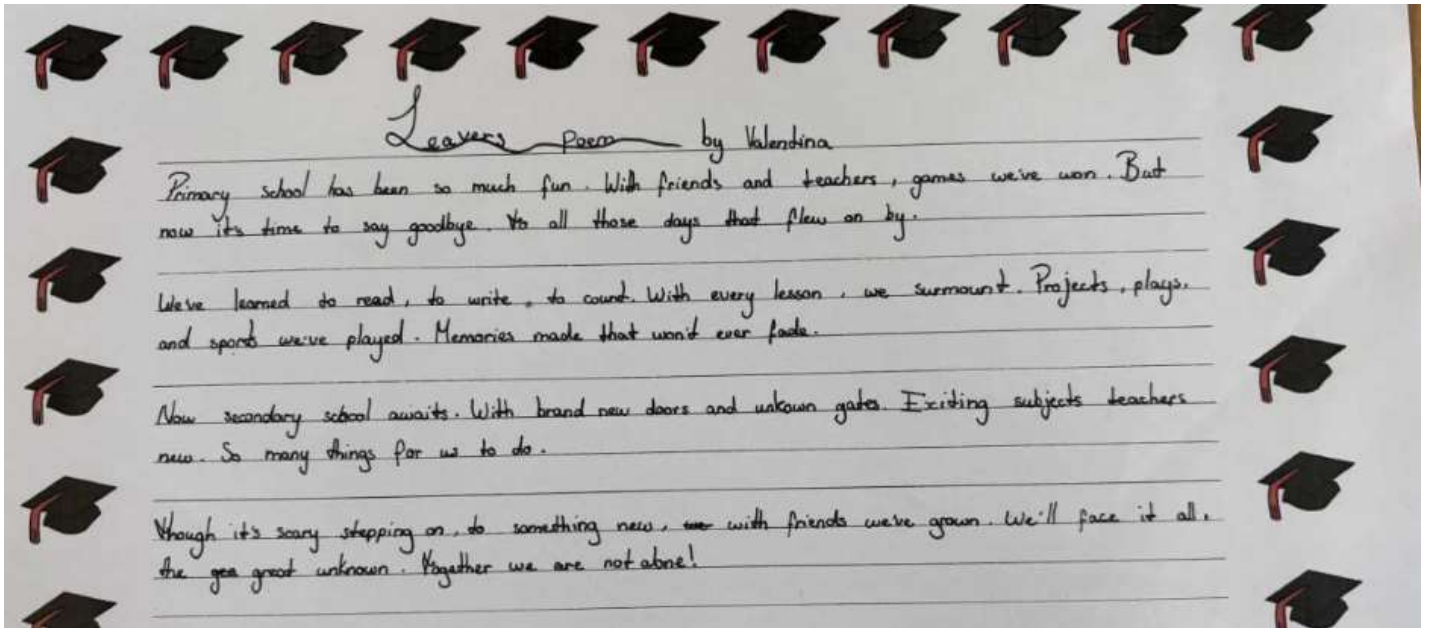 Leavers Poem by Valentina
Primary school has been so much fun. With friends and teachers, games we've won. But
now it's time to say goodbye. To all those days that flew on by.
We've learned to read, to write, to count. With every lesson, we surmount. Projects, plays,
and sports we've played. Memories made that won't ever fade.
Now secondary school awaits. With brand new doors and unkown gates. Exiting subjects teachers
new. So many things for us to do.
Though it's scary stepping on, to something new, with friends we've grown. We'll face it all,
the great unknown. Together we are not alone!